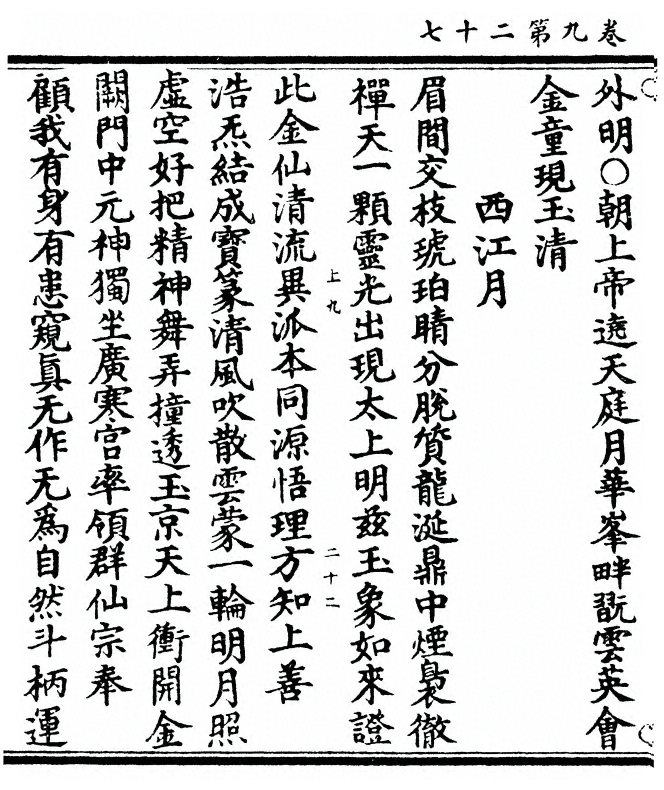 卷九第二十七
外明〇朝上帝遶天庭月華峯畔翫雲英會
金童現玉清
西江月
眉間交枝琥珀睛分脫質龍涎鼎中煙裊徹
禪天一顆靈光出現太上明茲玉象如來證
上九
二十二
此金仙清流異派本同源悟理方知上善
浩炁結成寶篆清風吹散雲蒙一輪明月照
虛空好把精神舞弄撞透玉京天上衝開金
闕門中元神獨坐廣寒宮率領群仙宗奉
顧我有身有患窺真无作无為自然斗柄運